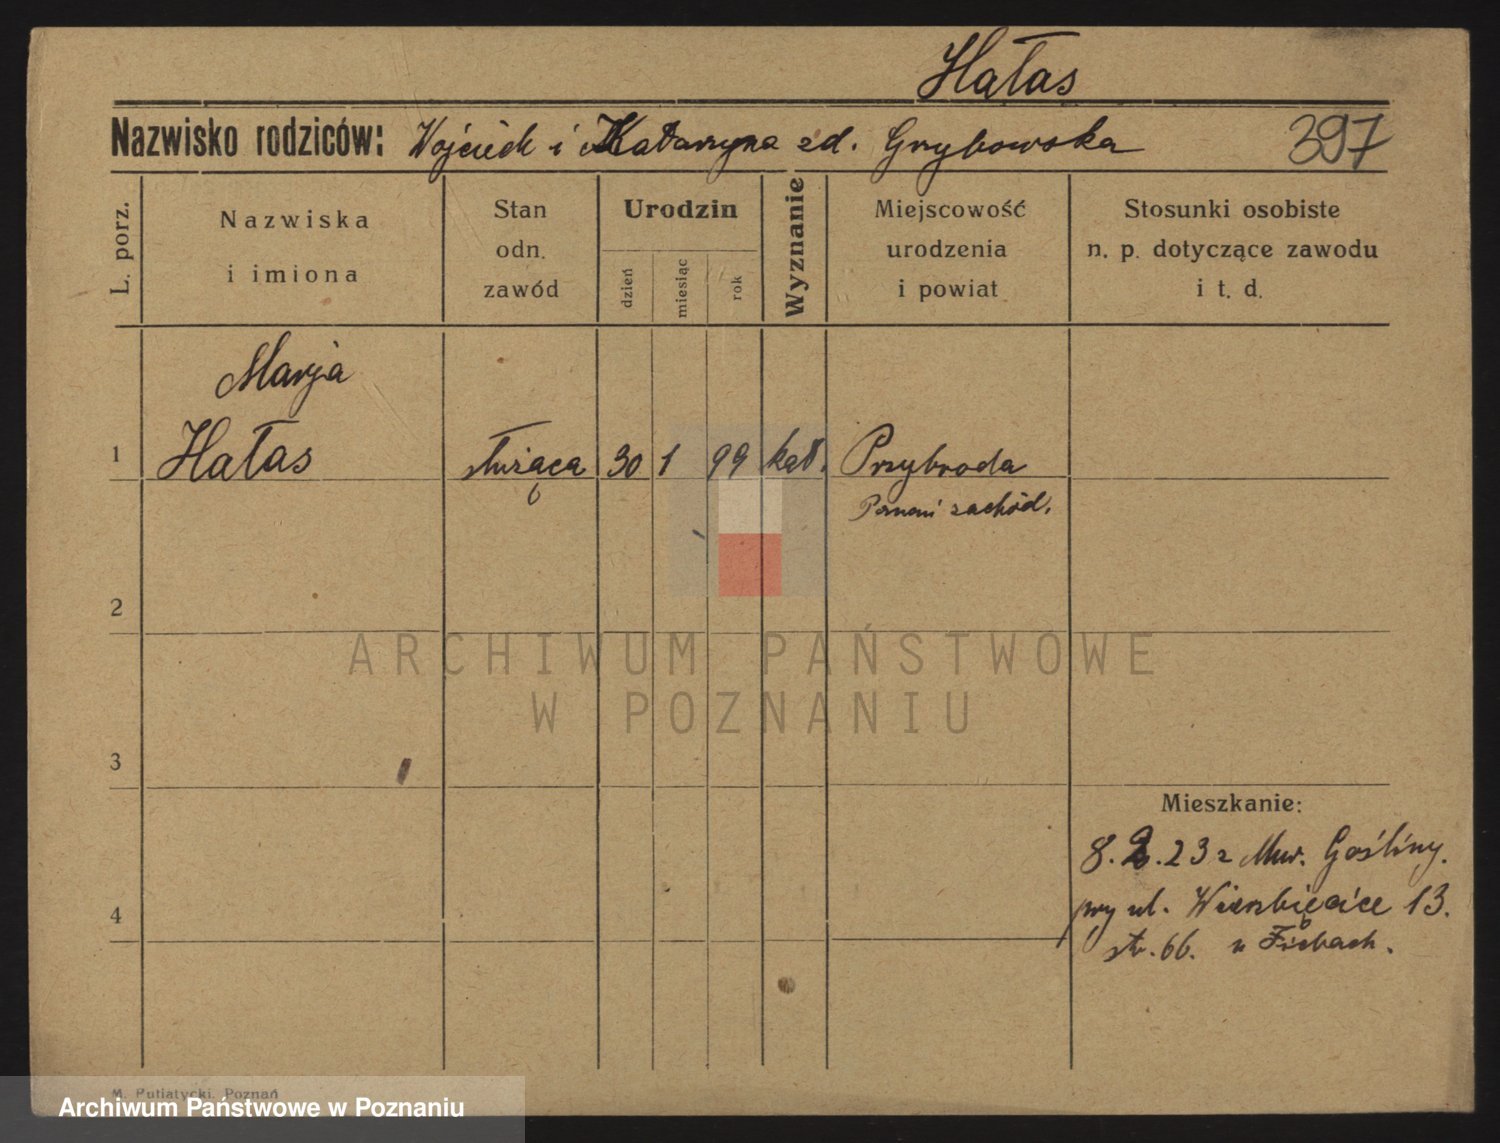 Hałas
Nazwisko rodziców: Wojciech i Katarzyna zd. Grybowska 397
L. porz.
Nazwiska
i imiona
Stan
odn.
zawód
Urodzin
dzień
miesiąc
rok
Wyznanie
Miejscowość
urodzenia
i powiat
Stosunki osobiste
n. p. dotyczące zawodu
i t. d.
Marja
1 Hałas służąca 30 1 99 kat. Przybroda
Poznań zachód.
2
ARCHIWUM PAŃSTWOWE
W POZNANIU
3
Mieszkanie:
8. 2. 23 z Mur. Gośliny.
4
przy ul. Wierzbięcice 13.
str. 66. u
M. Putiatycki, Poznań
Archiwum Państwowe w Poznaniu